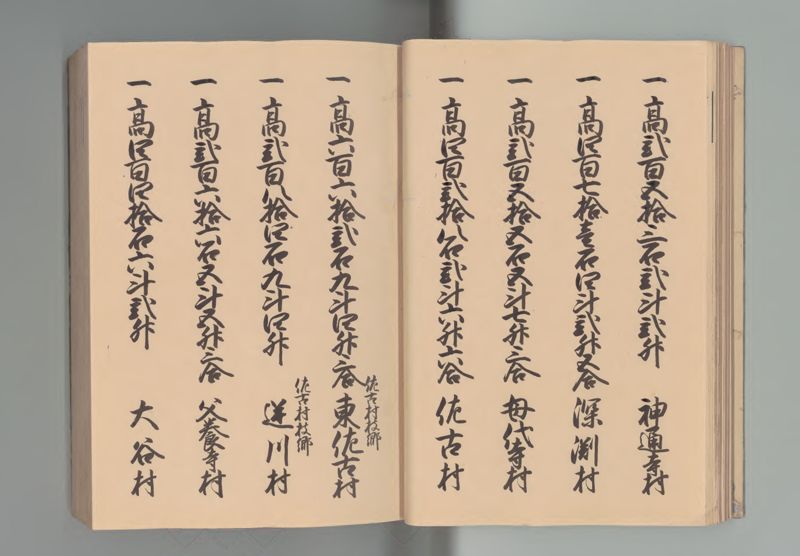 一高弐百五拾三石弐斗弐升 神通寺村
一高四百七拾壱石四斗弐升五合 深渕村
一高弐百五拾五石五斗七升三合 母代寺村
一高四百弐拾八石弐斗六升六合 佐古村
佐古村枝郷
一高六百六拾弐石九斗四升三合 東佐古村
佐古村枝郷
一高弐百八拾四石九斗四升 逆川村
一高弐百六拾六石五斗五升三合 父養寺村
一高四百四拾石六斗弐升 大谷村